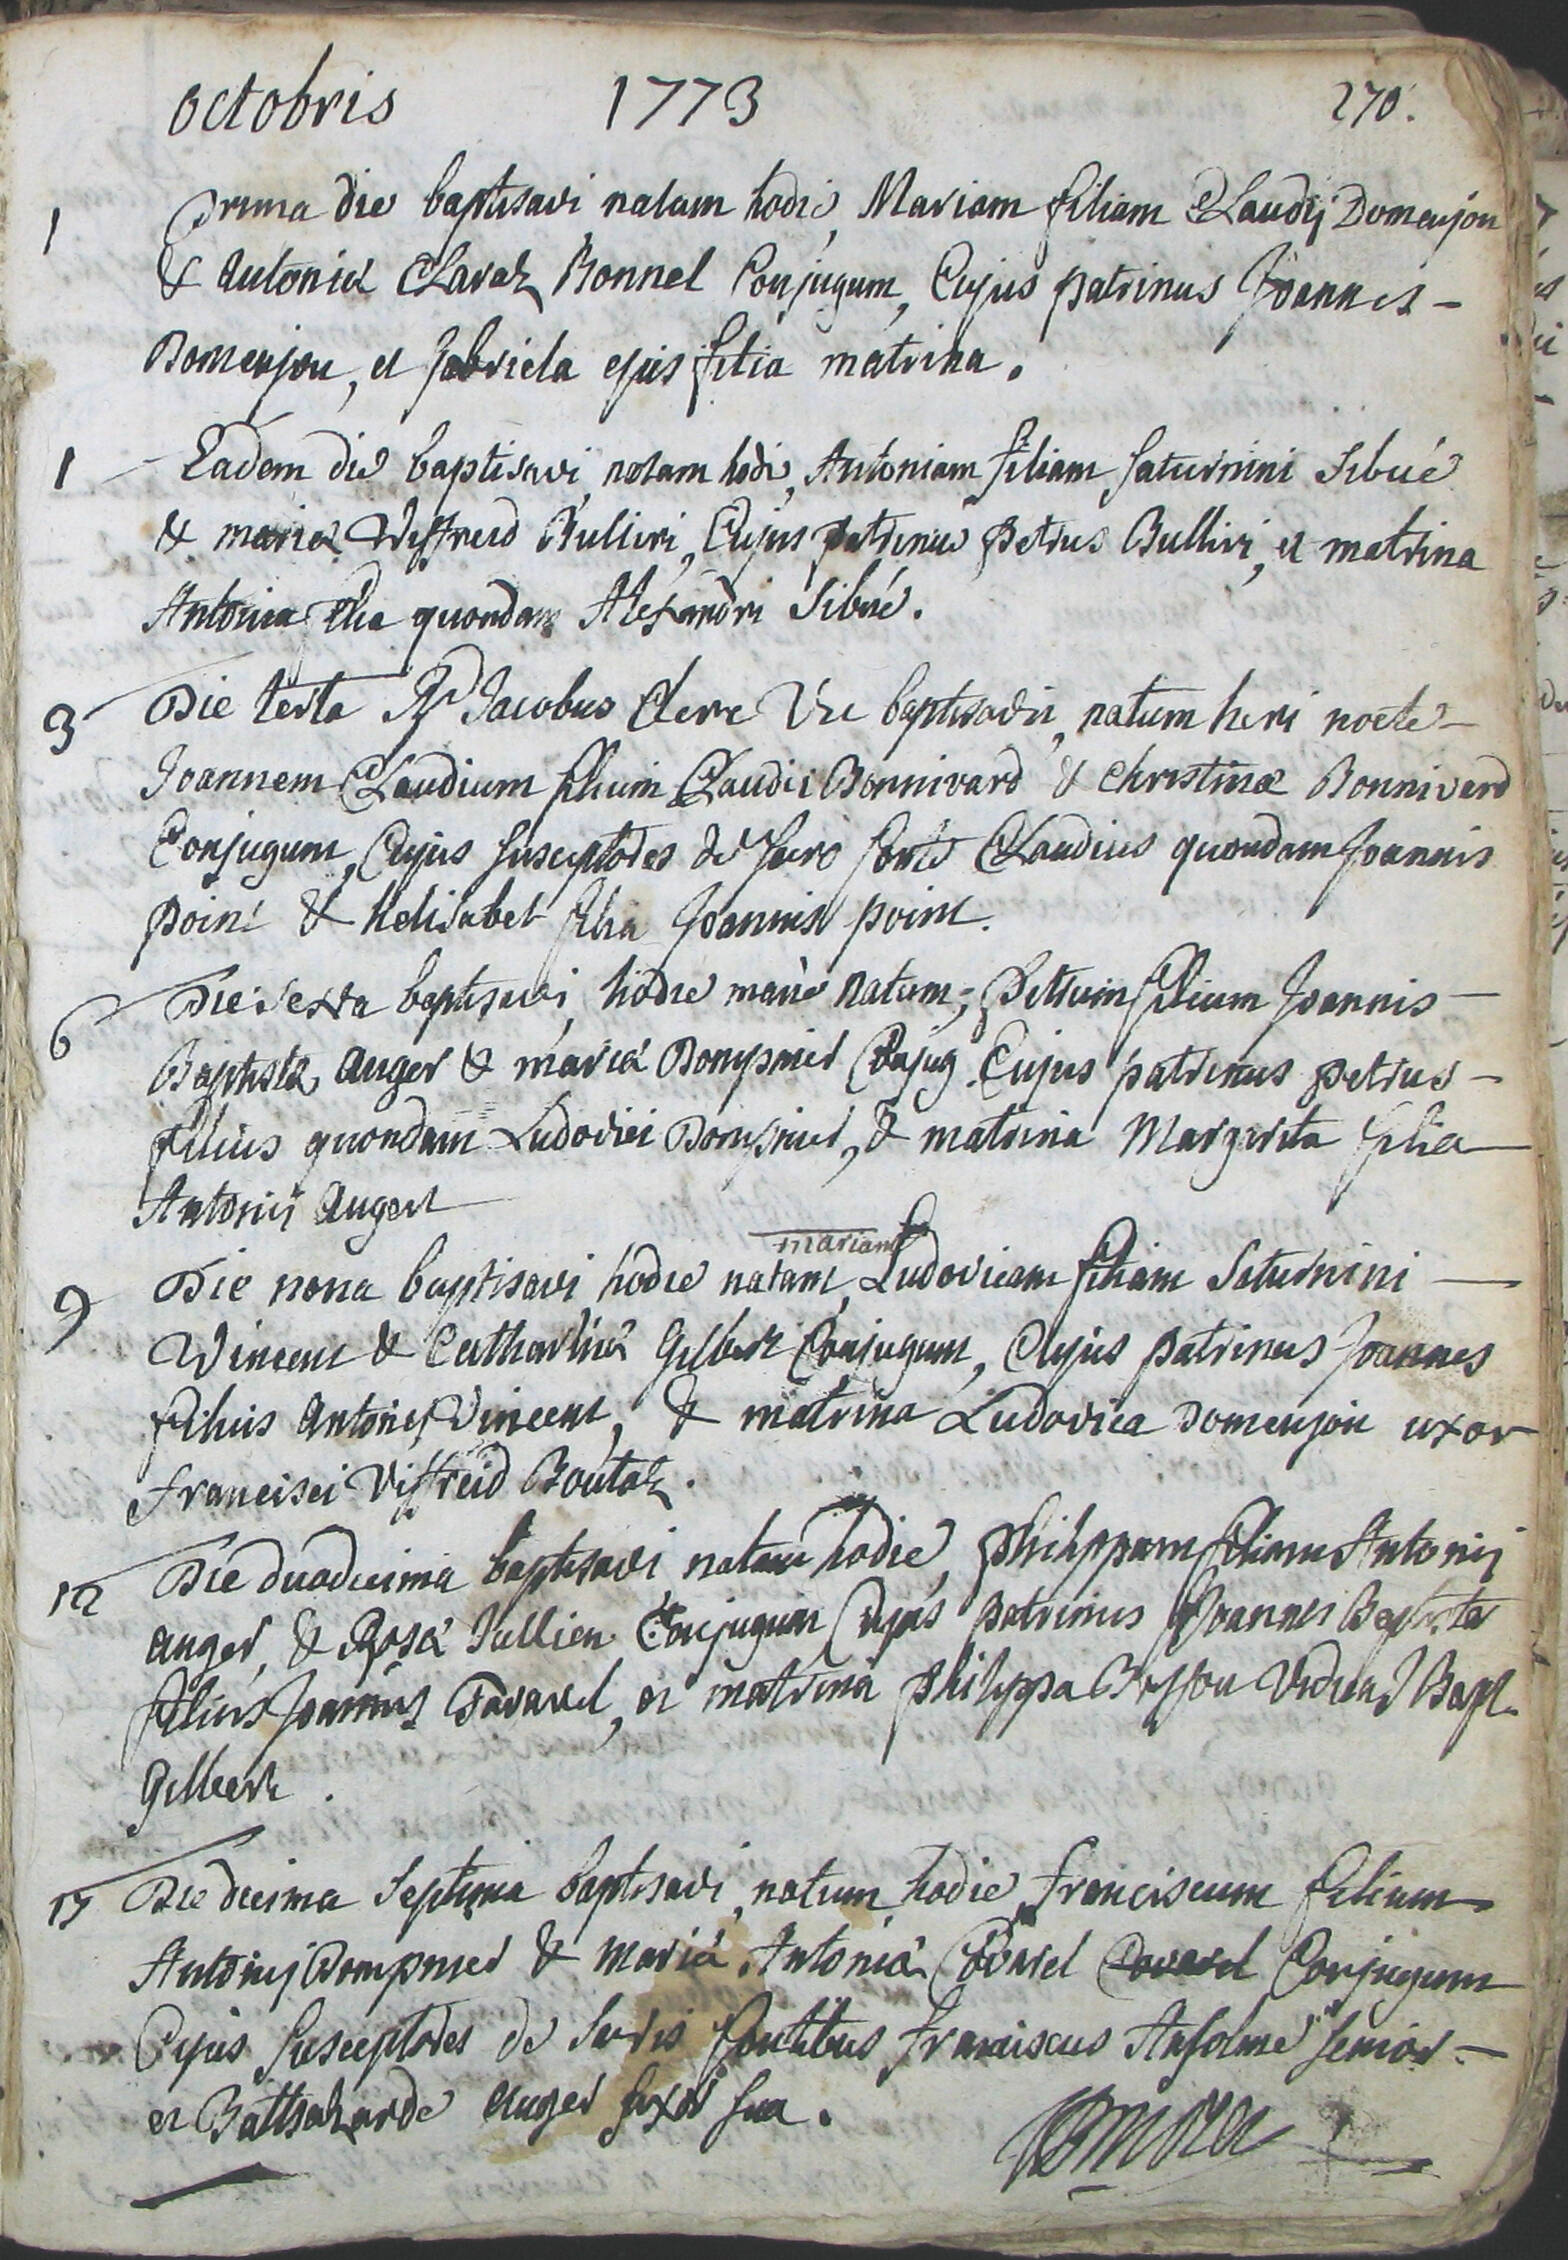 octobris 1773 270.
1 Prima die baptisavi natam hodie, Mariam filiam Claudij Domenjon
& Antoniæ Claraz Bonnel Conjugum, Cujus patrinus Joannes –
Domenjon, et Gabriela ejus filia matrina.
1 Eadem die baptisavi, natam hodie, Antoniam filiam Saturnini Sibué
& mariæ Viffreid Bullieri, Cujus patrinus petrus Bullieri, et matrina
Antonia filia quondam Alexandri Sibué.
3 Die tertia Rd Jacobus Clerc Vic baptisavit, natum heri nocte –
Joannem Claudium filium Claudii Bonnivard & christinæ Bonnivard
Conjugum, Cujus susceptores de sacro fonte Claudius quondam Joannis
point & helisabet filia Joannis point.
6 Die sexta baptisavi, hodie mane natum, Petrum filium Joannis –
Baptistæ auger & mariæ Dompnier Conjug. Cujus patrinus petrus –
filius quondam Ludovici Dompnier, & matrina Margarita filia
Antonij Auger
mariam
9 Die nona baptisavi hodie natam, Ludovicam filiam Saturnini —
Vincent & Catharinæ Gilbert Conjugum, Cujus patrinus Joannes
filius Antonij Vincent, & matrina Ludovica Domenjon uxor
francisci Viffreid Boutaz.
12 Die duodecima baptisavi, natam hodie, philippam filiam Antonij
auger, & Rosæ Jullien Conjugum Cujus patrinus Joannes Baptista
filius Joannis Tavavel, et matrina philippa Buffon Vidua J Bapt.
Gilbert.
17 Die decima Septima baptisavi, natum hodie, franciscum filium
Antonij Dompnier & Mariæ Antoniæ Conjugum
Cujus susceptores de sacris fontibus franciscus Anselme senior –
et Balthazarde auger uxor sua.